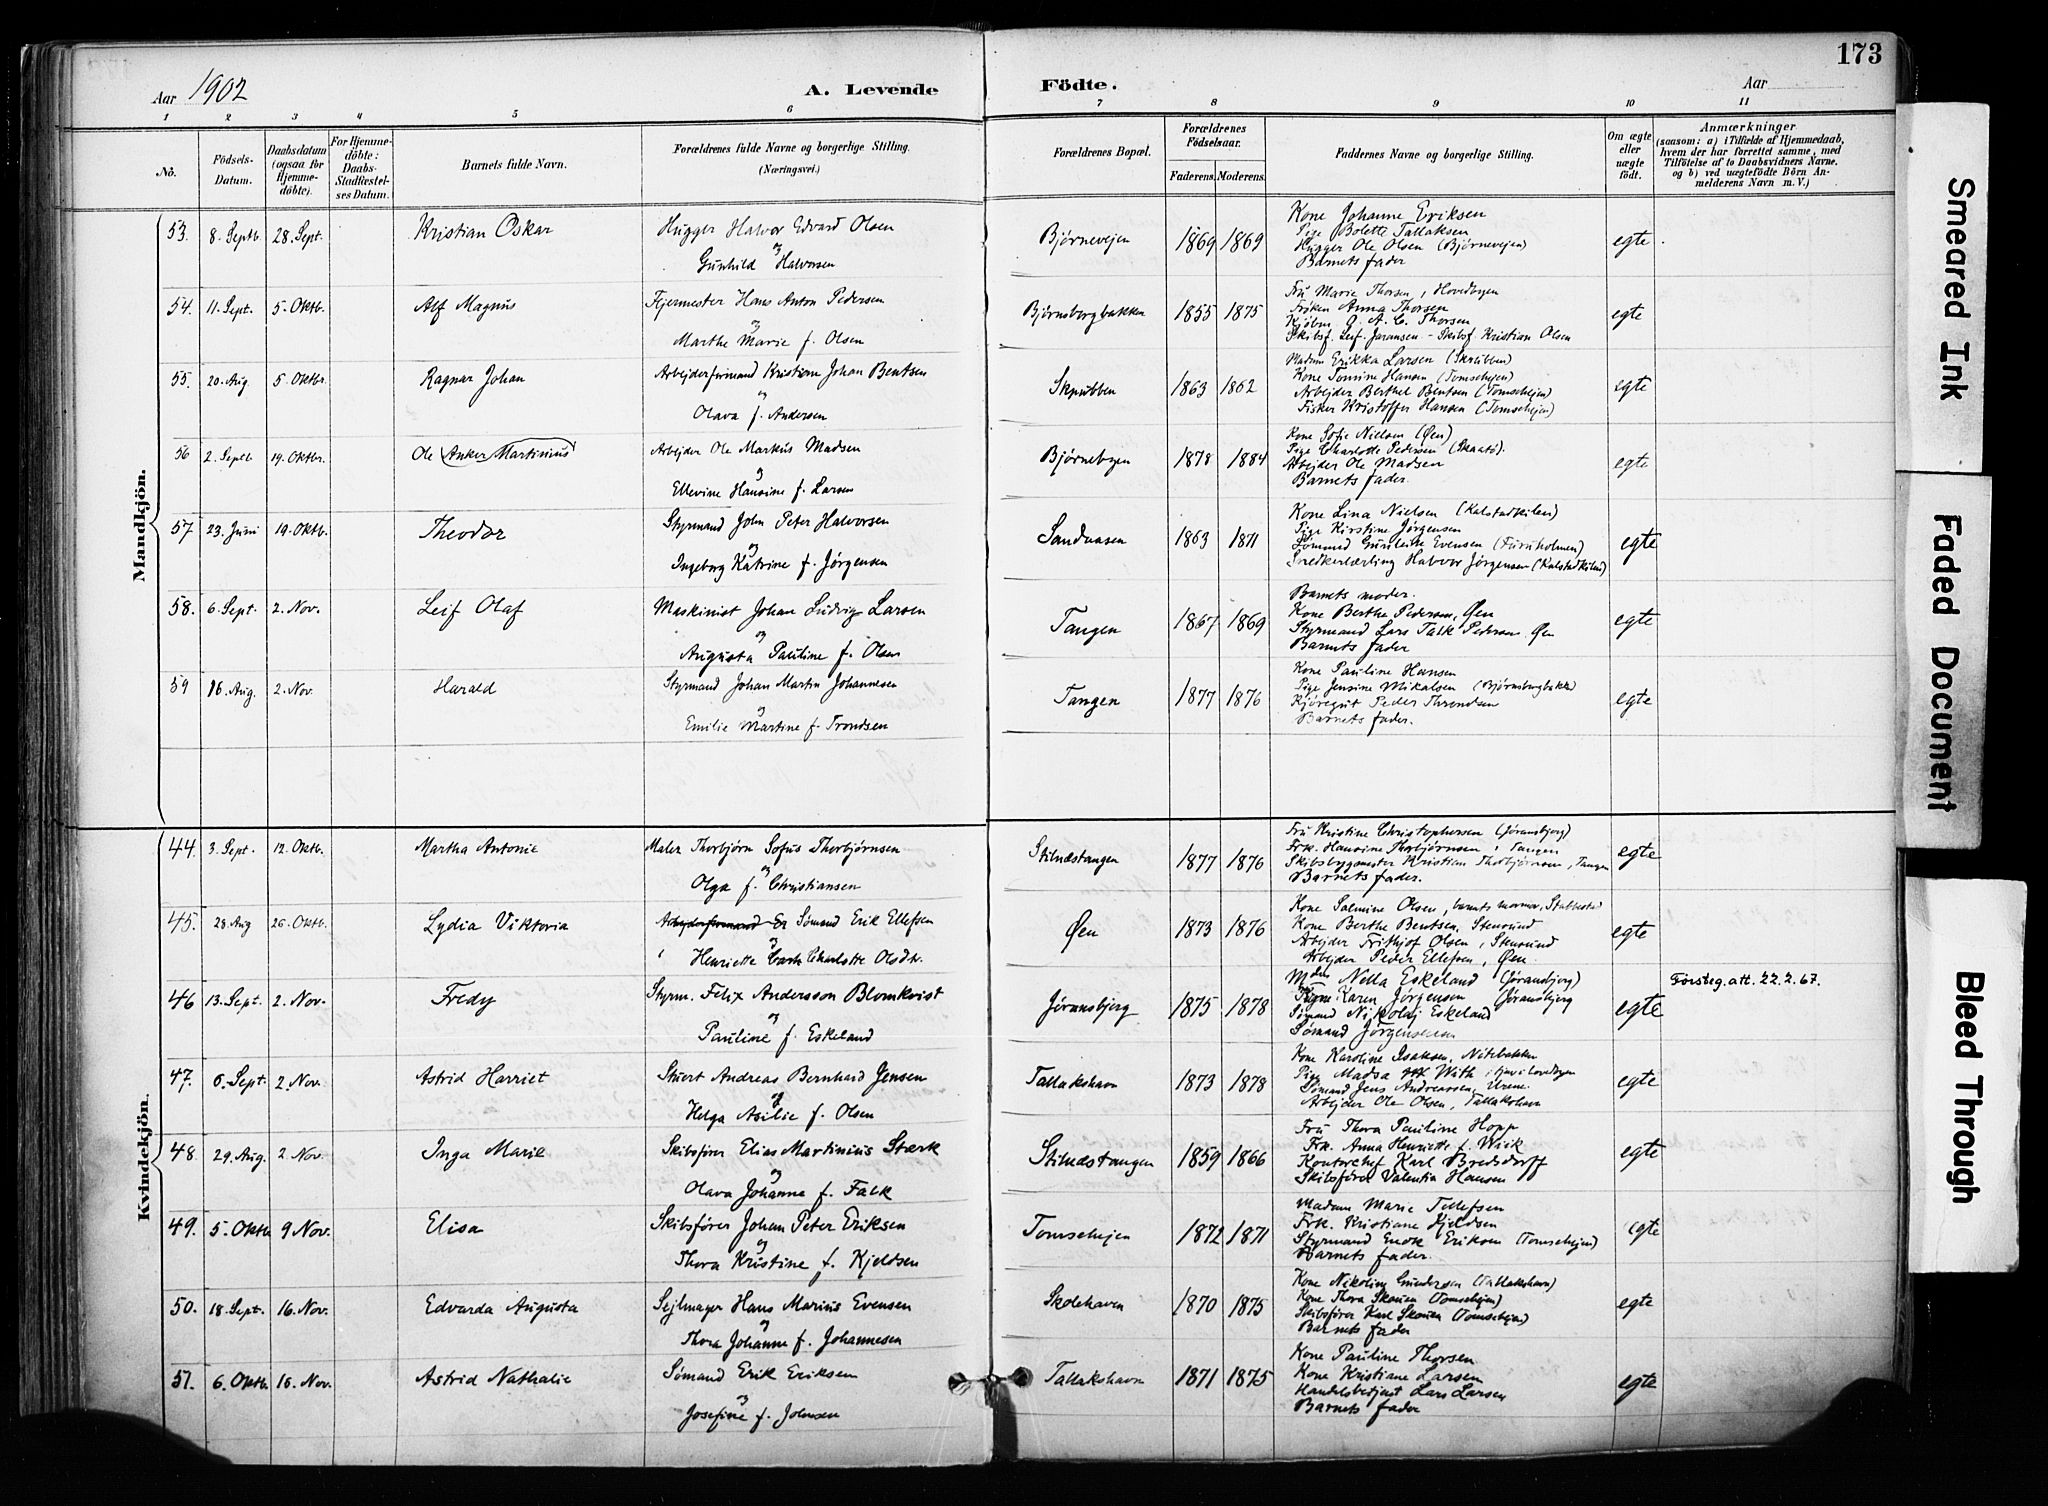 173
Aar 1902 A. Levende Födte. Aar
1 2 3 4 5 6 7 8 9 10 11
No.
Födsels-Datum.
Daabsdatum (ogsaa for Hjemme-döbte).
For Hjemme-döbte: Daabs-Stadfestel-ses Datum.
Barnets fulde Navn.
Forældrenes fulde Navne og borgerlige Stilling.
(Næringsvei.)
Forældrenes Bopæl.
Forældrenes Födselsaar.
Faderens. Moderens.
Faddernes Navne og borgerlige Stilling.
Om ægte eller uægte födt.
Anmærkninger
(saasom: a) i Tilfælde af Hjemmedaab,
hvem der har forrettet samme, med
Tilföielse af to Daabsvidners Navne.
og b) ved uægtefödte Börn An-
melderens Navn m. V.)
Mandkjön.
53. 8. Septb. 28. Sept. Kristian Oskar Hugger Halvor Edvard Olsen
og
Gunhild Halvorsen
Bjørnevejen 1869 1869
Kone Johanne Eriksen
Pige Bolette Tallaksen
Hugger Ole Olsen (Bjørnevejen)
Barnets fader
egte.
54. 11. Sept. 5. Oktb. Alf Magnus Fejermester Hans Anton Pedersen
og
Marthe Marie f. Olsen
Bjørnsborgbakken 1855 1875
Fru Marie Thorsen, Hovedbyen
Frøken Anna Thorsen
Kjøbm. G. A. C. Thorsen
Skibsf. Leif Joransen - Skibsf. Kristian Olsen
egte
55. 20. Aug. 5. Oktbr. Ragnar Johan Arbejderformand Kristian Johan Bentsen
og
Olava f. Andersen
Skrubben 1863 1862
Madam Erikka Larsen (Skrubben)
Kone Tomine Hansen (Tomsehejen)
Arbejder Berthel Bentsen (Tomsehejen)
Fisker Kristoffer Hansen (Tomsehejen)
egte
56 2. Septb 19. Oktbr. Ole Anker Martinius Arbejder Ole Markus Madsen
og
Ellevine Hansine f. Larsen
Bjørnebyen 1878 1884
Kone Sofie Nielsen (Øen)
Pige Charlotte Pedersen (Skaatø).
Arbejder Ole Madsen
Barnets fader.
egte
57 23. Juni 19. Oktb. Theodor Styrmand John Peter Halvorsen
og
Ingeborg Katrine f. Jørgensen
Sandaasen 1863 1871
Kone Lina Nielsen (Kalstadkilen)
Pige Kirstine Jørgensen
Sømand Gunleik Evensen (Furuholmen)
Snedkerlærling Halvor Jørgensen (Kalstadkilen)
egte
58. 6. Sept. 2. Nov. Leif Olaf Maskinist Johan Ludvig Larsen
og
Augusta Pauline f. Olsen
Tangen 1867 1869
Barnets moder.
Kone Berthe Pedersen, Øen
Styrmand Lars Talk Pedersen Øen
Barnets fader
egte
59 16. Aug. 2. Nov. Harald Styrmand Johan Martin Johannesen
og
Emilie Martine f. Trondsen
Tangen 1877 1876
Kone Pauline Hansen
Pige Jensine Mikalsen (Bjørnsborgbakke)
Kjøregut Peder Throndsen
Barnets fader.
egte
Kvindekjön.
44. 3. Sept. 12. Oktb. Martha Antonie Maler Thorbjørn Sofus Thorbjørnsen
og
Olga f. Christiansen
Stilnæstangen 1877 1876
Fru Kristine Christophersen (Jøransbjerg)
Frk. Hansine Thorbjørnsen, Tangen
Skibsbygmester Kristian Thorbjørnsen, Tangen
Barnets fader.
egte
45. 28. Aug 26. Oktb. Lydia Viktoria Arbejderformand Er Sømand Erik Ellefsen
og
Henriette Charlotte Olsdtr.
Øen 1873 1876
Kone Salmine Olsen, barnets mormor, Stabbestad
Kone Berthe Bentsen, Stensund
Arbejder Frithjof Olsen, Stensund
Arbejder Peder Ellefsen, Øen.
egte
46 13. Sept. 2. Nov. Fredy Styrm. Felix Andersson Blomkvist
og
Pauline f. Eskeland
Jøransbjerg 1875 1878
Mdm Nella Eskeland (Jøransbjerg)
Karen Jørgensen (Jøransbjerg
Sømand Nikolaj Eskeland
Sømand Jørgensen
egte
Førsteg.att. 22.2.67.
47. 6. Sept. 2. Nov. Astrid Harriet Stuert Andreas Bernhard Jensen
og
Helga Asilie f. Olsen
Tallakshavn 1873 1878
Kone Karoline Isaksen, Nitebakken
Pige Madsa With
Sømand Jens Andreassen, Urene
Arbejder Ole Olsen, Tallakshavn
egte
48. 29. Aug. 2. Nov. Inga Marie Skibsfører Elias Martinius Stærk
og
Olava Johanne f. Falk
Stilnæstangen 1859 1866
Fru Thora Pauline Hopp
Frk. Anna Henriette f. Wiik
Kontorchef Karl Bredsdorff
Skibsfører Valentin Hansen
egte
49. 5. Oktb. 9 Nov. Elisa Skibsfører Johan Peter Eriksen
og
Thora Kristine f. Kjeldsen
Tomsehejen 1872 1871
Madam Marie Tellefsen
Frk. Kristiane Kjeldsen
Styrmand Endr. Eriksen (Tomsehejen)
Barnets fader.
egte
50. 18. Sept. 16. Nov. Edvarda Augusta Sejlmager Hans Marius Evensen
og
Thora Johanne f. Johannesen
Skolehaven 1870 1875
Kone Nikoline Gundersen (Tallakshavn)
Kone Thora Skouen (Tomsehejen)
Skibsfører Karl Skouen (Tomsehejen)
Barnets fader
egte
51. 6. Oktb. 16. Nov. Astrid Nathalie Sømand Erik Eriksen
og
Josefine f. Johnsen
Tallakshavn 1871 1875
Kone Pauline Thorsen
Kone Kristiane Larsen
Handelsbetjent Lars Larsen
Barnets fader
egte
Smeared Ink
Faded Document
Bleed Through